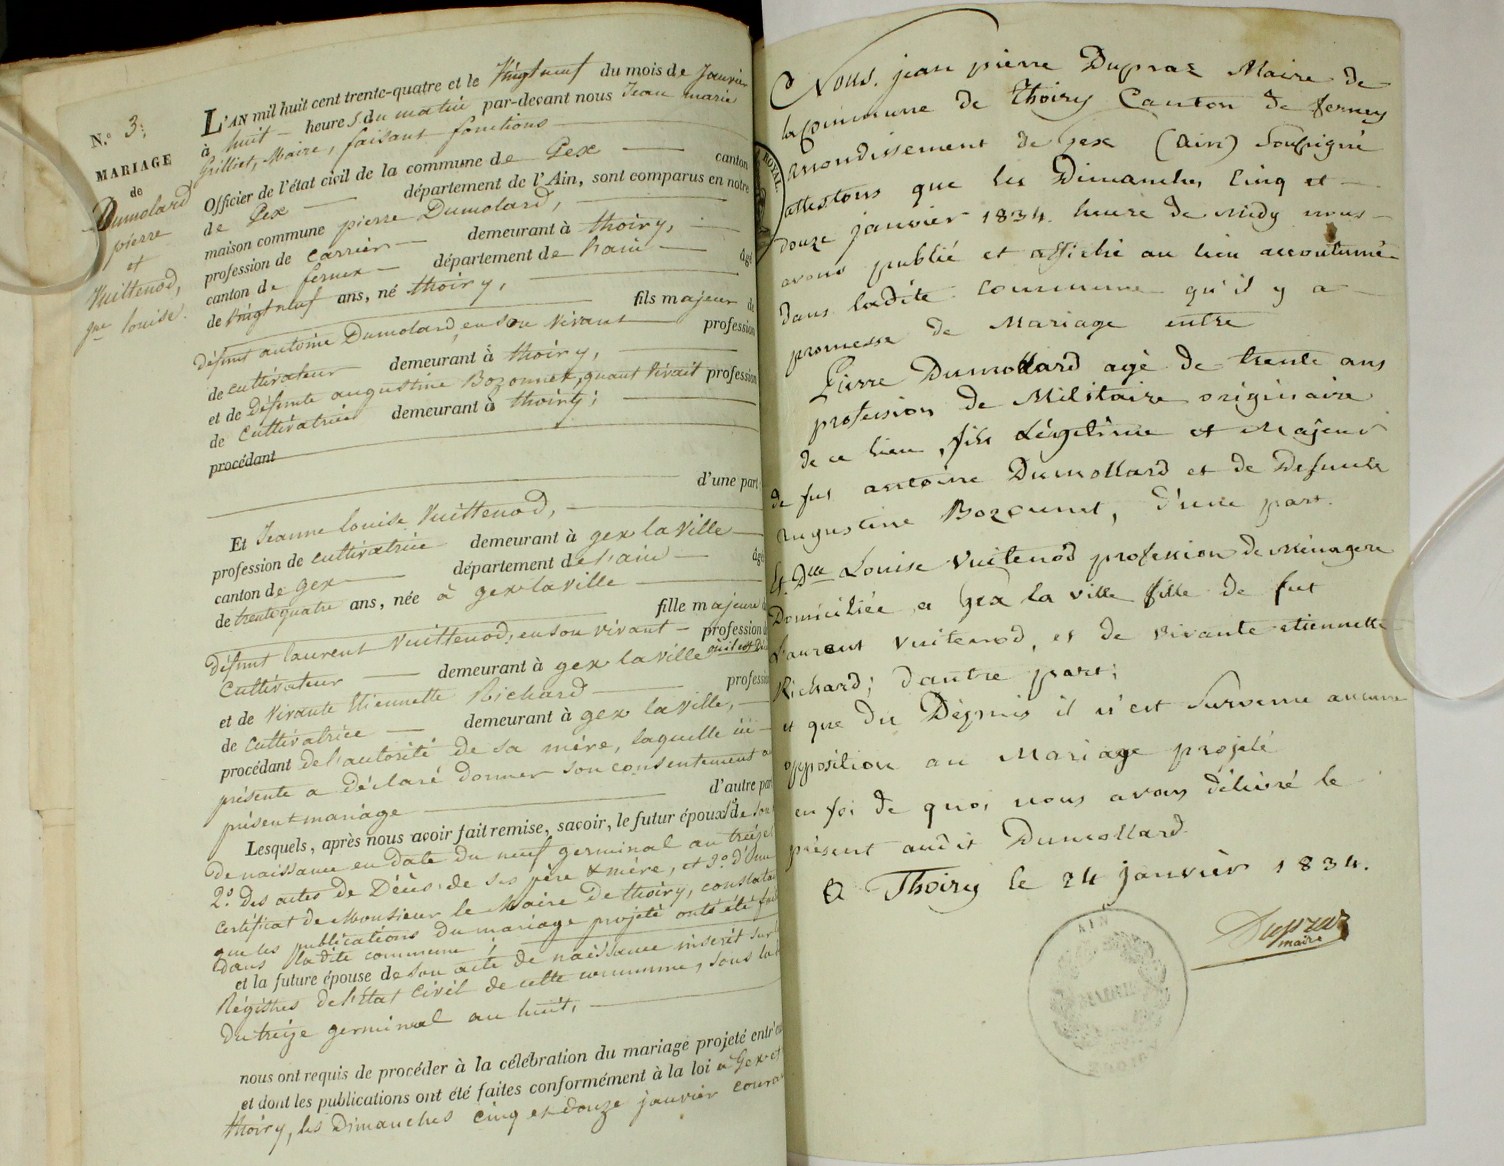 N.º 3.
MARIAGE
de
Dumolard
pierre
et
Vuittenod,
jne louise.
L'AN mil huit cent trente-quatre et le Vingt neuf du mois de Janvier
à huit heures du matin par-devant nous Jean marie
Grilliet, Maire, faisant fonctions
Officier de l'état civil de la commune de Gex canton
de Gex département de l'Ain, sont comparus en notre
maison commune pierre Dumolard,
profession de Carrier demeurant à thoiry,
canton de fernex département de l'ain âgé
de vingt neuf ans, né thoiry,
fils majeur de
défunt antoine Dumolard, en son vivant profession
de cultivateur demeurant à thoiry,
et de Défunte augustine Bozonnet, quant vivait profession
de Cultivatrice demeurant à thoiry;
procédant
d'une part
Et Jeanne louise Vuittenod,
profession de cultivatrice demeurant à gex la ville
canton de gex département de l'ain âgé
de trente quatre ans, née à gex la ville
fille majeure d
défunt laurent Vuittenod, en son vivant profession d
Cultivateur demeurant à gex la ville
et de Vivante Etiennette Richard professio
de Cultivatrice demeurant à gex la ville,
procédant de l'autorité de sa mère, laquelle ici
présente a déclaré donner son consentement a
présent mariage
d'autre part
Lesquels, après nous avoir fait remise, savoir, le futur époux 1.º de son
de naissance en date du neuf germinal an treize
2.º des actes de Décès de ses père & mère, et 3.º d'un
Certificat de Monsieur le Maire de thoiry, constata
que les publications du mariage projeté ont été fai
dans ladite commune;
et la future épouse de son acte de naissance inscrit sur
Régistres de l'état Civil de cette commune, sous la
du treize germinal an huit,
nous ont requis de procéder à la célébration du mariage projeté entr'eu
et dont les publications ont été faites conformément à la loi à Gex et
thoiry, les Dimanches cinq et douze janvier coura
ROYAL
Nous. jean pierre Dupraz Maire de
la Commune de Thoiry Canton de ferney
arrondissement de Gex (Ain) Soussigné
attestons que les Dimanches Cinq et
douze janvier 1834. heure de Midy nous
avons publié et affiché au lieu accoutumé
dans ladite Commune qu'il y a
promesse de Mariage entre
Pierre Dumollard agé de trente ans
profession de Militaire originaire
de ce lieu, fils Légitime et Majeur
de fut antoine Dumollard et de Defunte
augustine Bozonnet, d'une part.
Et Dlle Louise Vuitenod profession de Ménagere
Domiciliée a Gex la ville fille de fut
Laurent vuitenod, et de vivante etiennette
Richard; dautre part;
et que du Dépuis il n'est Survenu aucune
opposition au Mariage projeté
en foi de quoi nous avons délivré le
présent audit Dumollard.
A Thoiry le 24 janvier 1834.
Dupraz
maire
AIN
MAIRIE
THOIRY